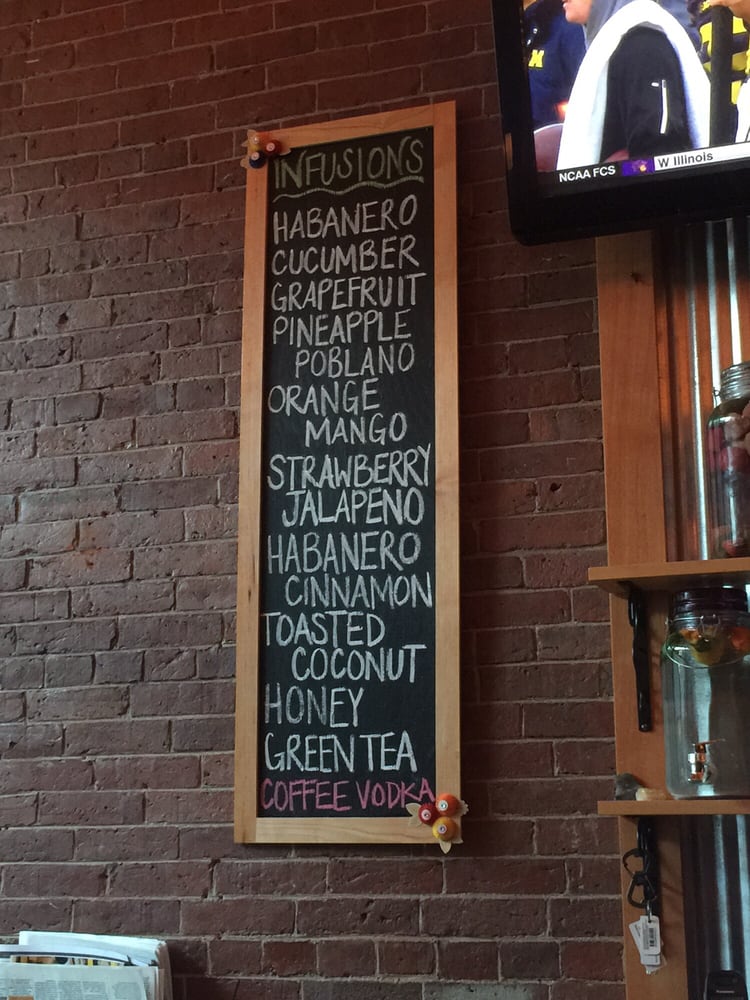 INFUSIONS
HABANERO
CUCUMBER
GRAPEFRUIT
PINEAPPLE
POBLANO
ORANGE
MANGO
STRAWBERRY
JALAPENO
HABANERO
CINNAMON
TOASTED
COCONUT
HONEY
GREEN TEA
COFFEE VODKA
NCAA FCS W Illinois